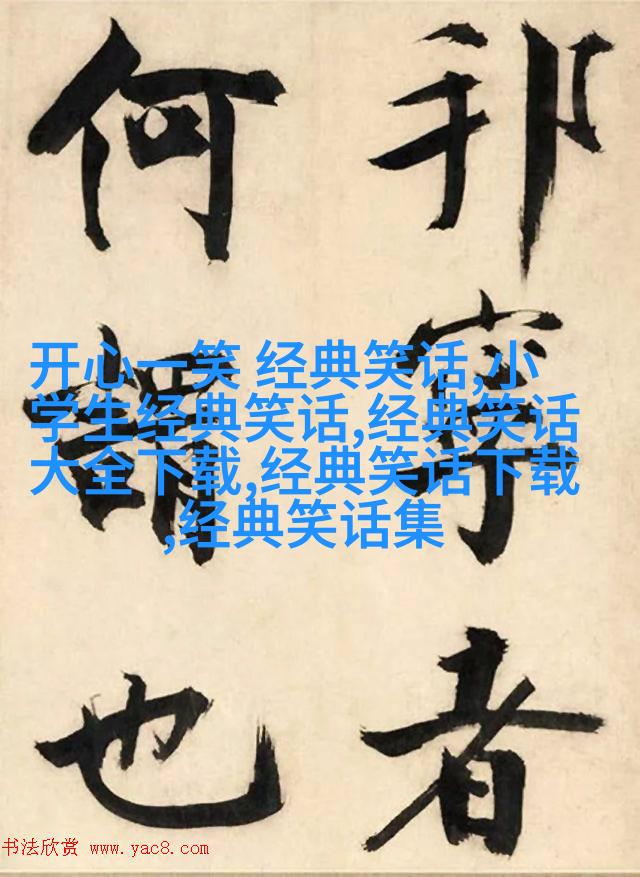 邦寧者
何謂也
开心一笑 经典笑话,小
学生经典笑话,经典笑话
大全下载,经典笑话下载
,经典笑话集
书法欣赏 www.yac8.com